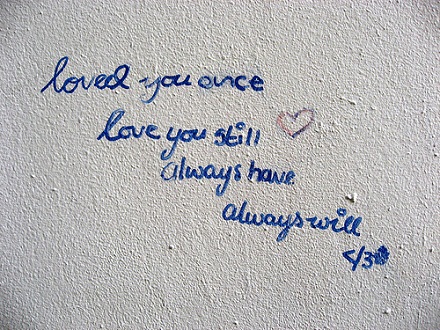 loved you once
love you still
always have
always will
</3